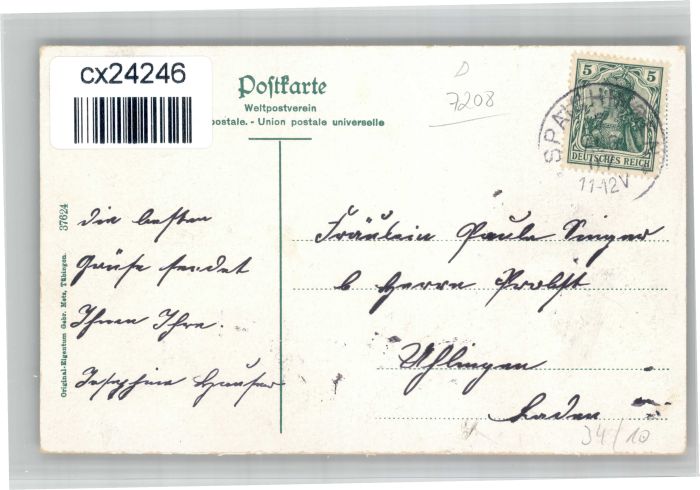 cx24246
Postkarte
Weltpostverein
postale. - Union postale universelle
D
7208
5 5
DEUTSCHES REICH
SPAICHINGEN
11-12V
37624
Original-Eigentum Gebr. Metz, Tübingen.
die besten
Grüße sendet
Ihnen Ihre.
Josephine Hauser
Fräulein Paula Singer
b Herrn Probst
Uhlingen
Baden
34/10